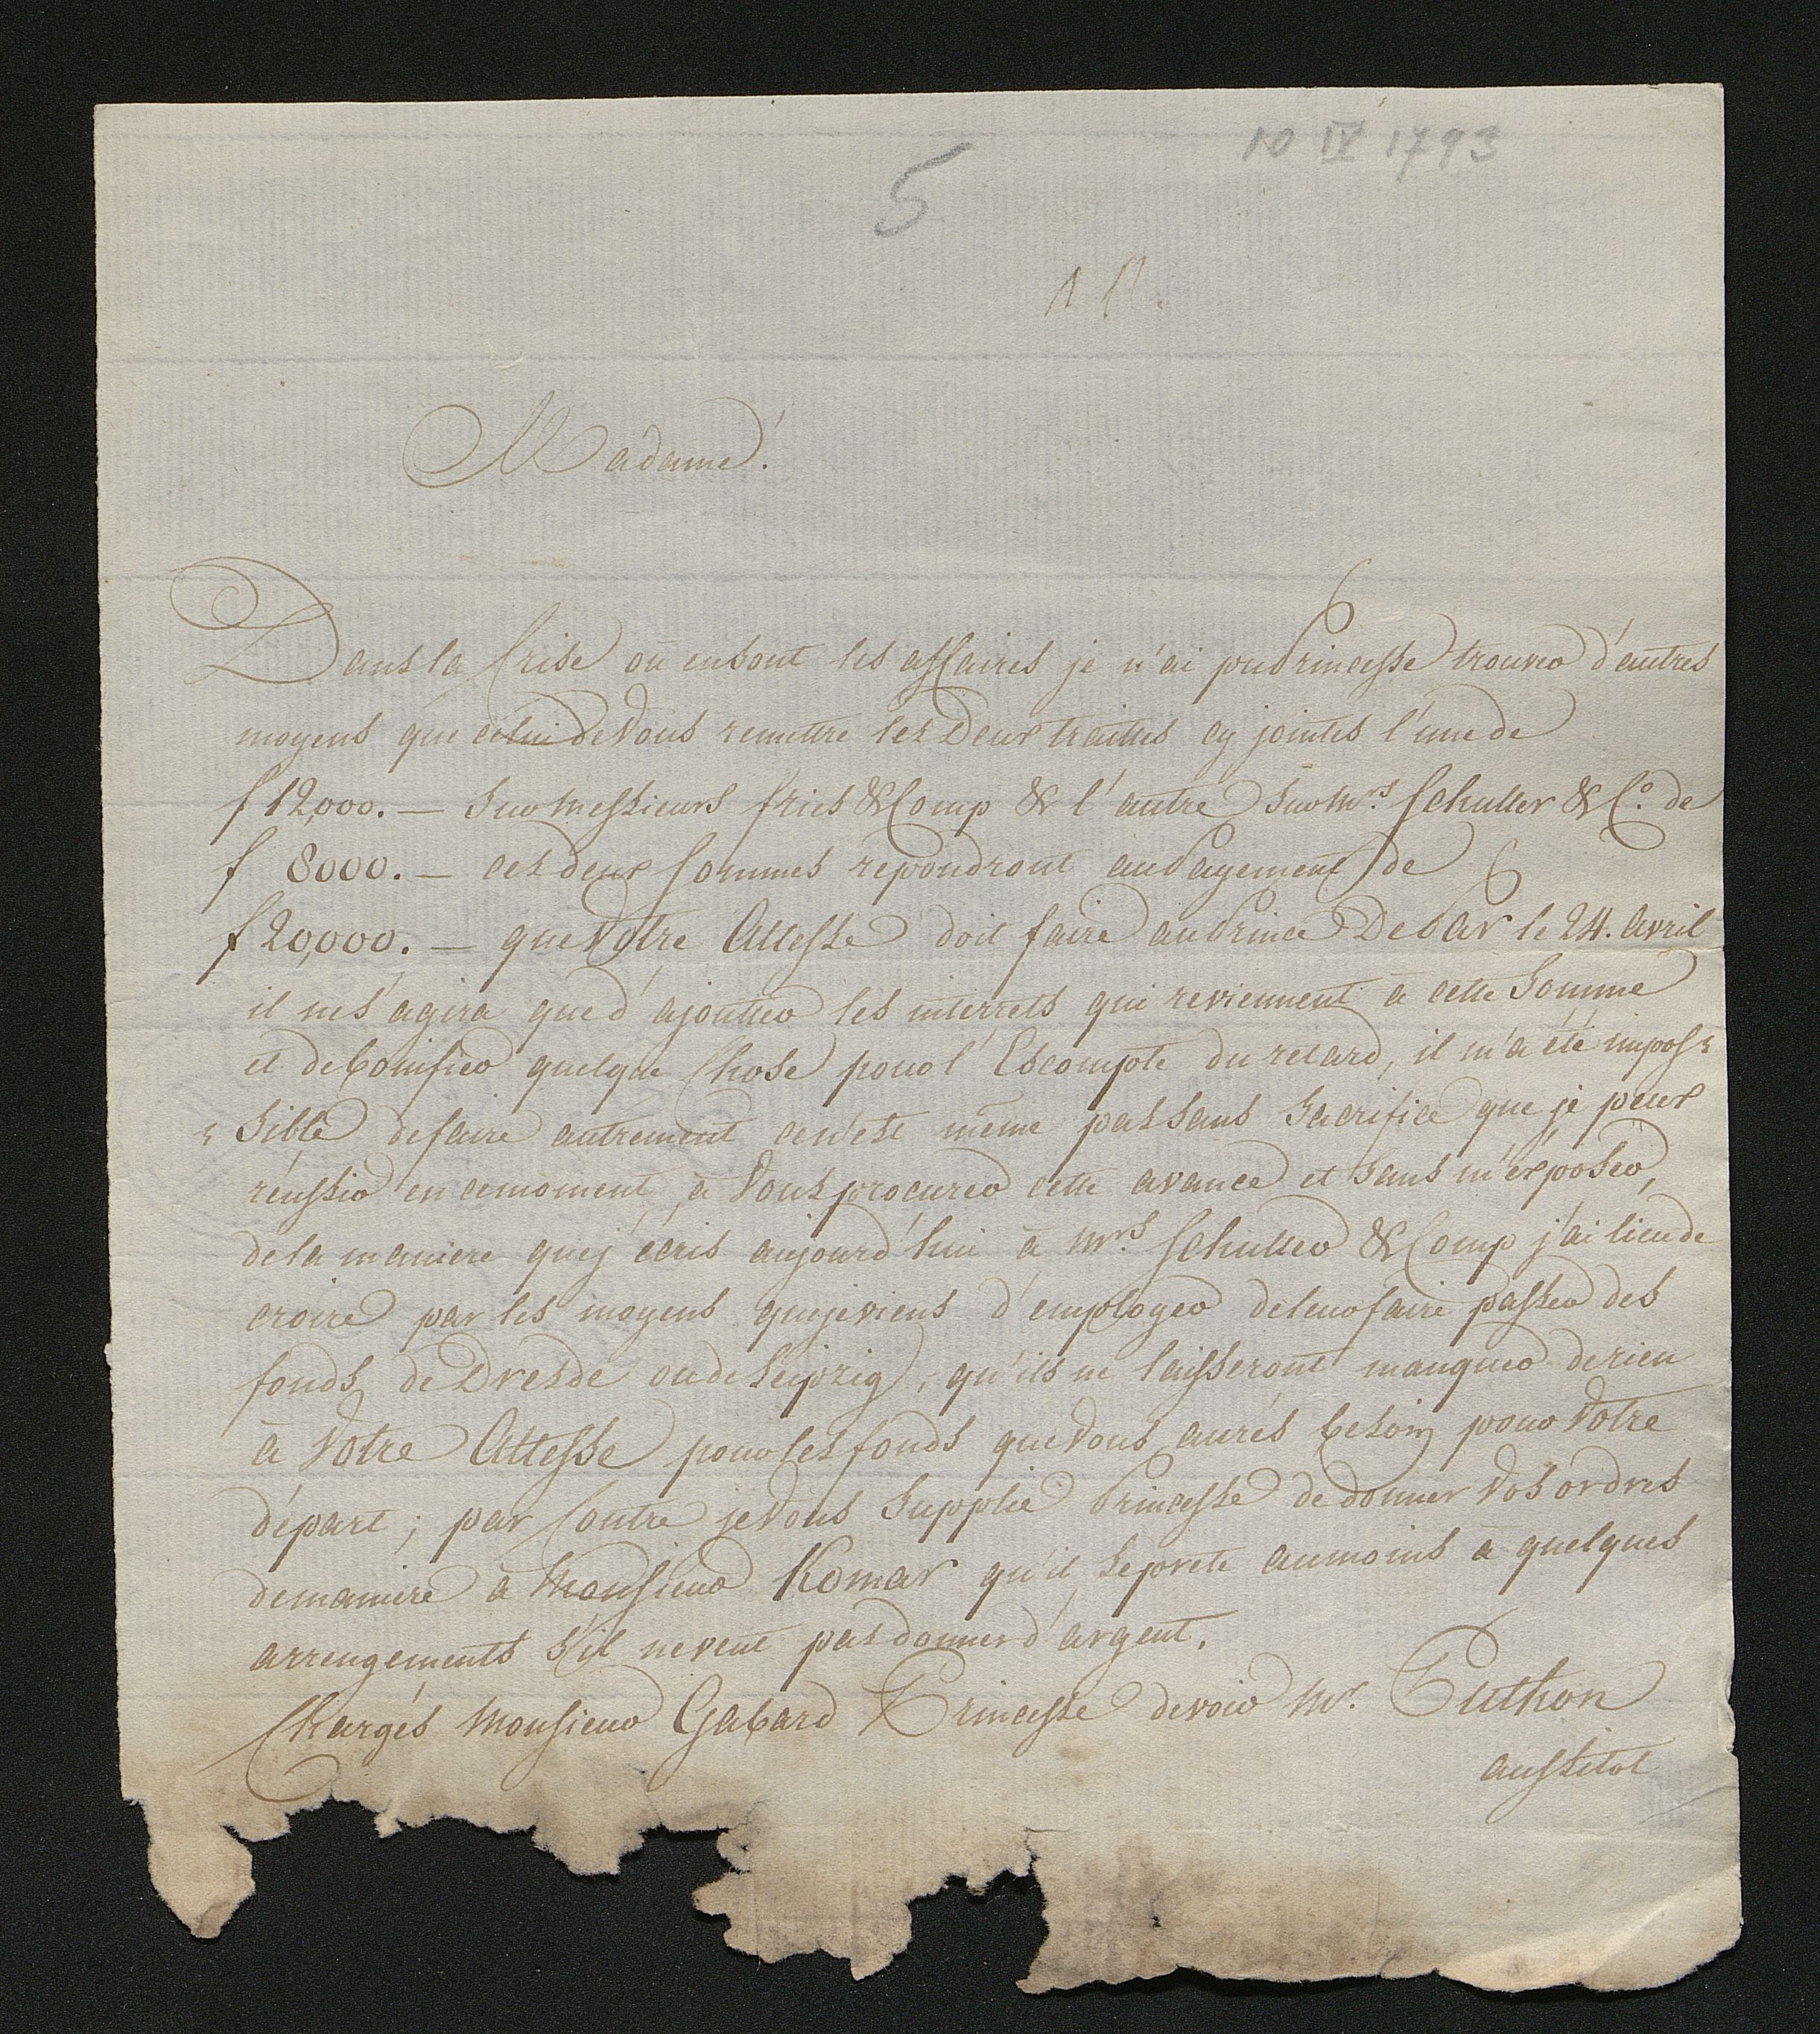 10 IV 1793
5
Madame!
Dans la Crise où en sont les affaires je n'ai pu Princesse trouver d'autres
moyens que celui de Vous remettre les Deux traittes cy jointes l'une de
f 12,000. — Sur Messieurs fries & Comp & l'autre Sur Mrs Schuller & Co. de
f 8000. — ces deux Sommes repondront au Payement de
f 20,000. — que Votre Altesse doit faire au Prince De Bar le 24. Avril
il ne s'agira que d'ajoutter les interrets qui reviennent à cette Somme
et de bonifier quelque Chose pour l'Escompte du retard, il m'a été impos=
=Sible de faire autrement ce n'est même pas sans Sacrifice que je peux
réussir en ce moment, à Vous procurer cette avance et Sans m'éxposer,
de la maniere que j'écris aujourd'hui à Mrs Schuller & Comp j'ai lieu de
croire par les moyens que je viens d'employer de leur faire passer des
fonds de Dresde ou de Leipzig, qu'ils ne laisseront manquer de rien
à Votre Altesse pour les fonds que Vous aurés besoin pour Votre
départ; par Contre je Vous Supplie Princesse de donner Vos ordres
de maniere à Monsieur Komar qu'il se prete au moins à quelques
arrengements s'il ne veut pas donner d'argent.
Chargés Monsieur Gabard Princesse de voir Mr. Puthon
aussitot